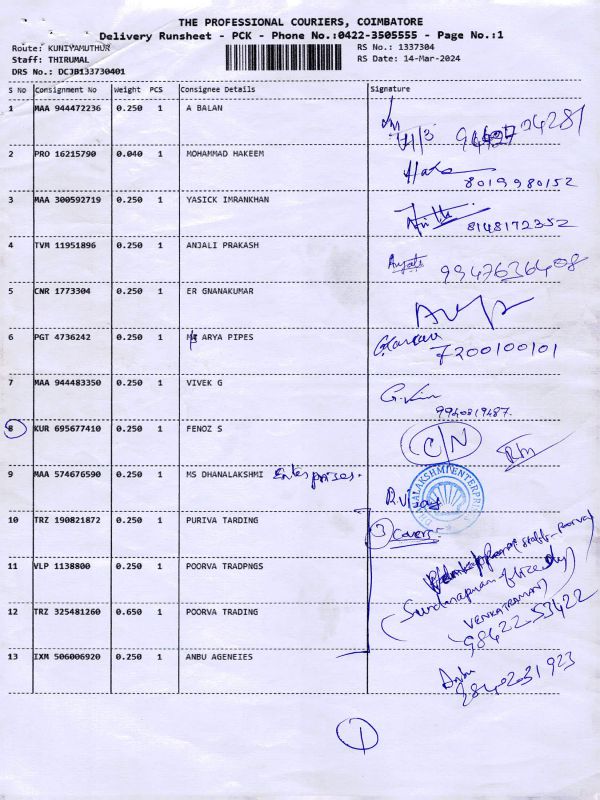 THE PROFESSIONAL COURIERS, COIMBATORE
Delivery Runsheet - PCK - Phone No.:0422-3505555 - Page No.:1
Route: KUNIYAMUTHUR
RS No.: 1337304
Staff: THIRUMAL
RS Date: 14-Mar-2024
DRS No.: DCJB133730401
S No Consignment No Weight PCS Consignee Details Signature
1 MAA 944472236 0.250 1 A BALAN
2 PRO 16215790 0.040 1 MOHAMMAD HAKEEM
8019980152
3 MAA 300592719 0.250 1 YASICK IMRANKHAN
8148172352
4 TVM 11951896 0.250 1 ANJALI PRAKASH
Anjali 9947636408
5 CNR 1773304 0.250 1 ER GNANAKUMAR
6 PGT 4736242 0.250 1 MS ARYA PIPES
7200100101
7 MAA 944483350 0.250 1 VIVEK G
9940819487
8 KUR 695677410 0.250 1 FENOZ S
C/N
9 MAA 574676590 0.250 1 MS DHANALAKSHMI Enterprises.
R.Vijay
DHANALAKSHMI ENTERPRISES
10 TRZ 190821872 0.250 1 PURIVA TARDING
3 Cover
11 VLP 1138800 0.250 1 POORVA TRADPNGS
12 TRZ 325481260 0.650 1 POORVA TRADING
VENKATRAMAN)
98422 53422
13 IXM 506006920 0.250 1 ANBU AGENEIES
Anbu
9842031923
1